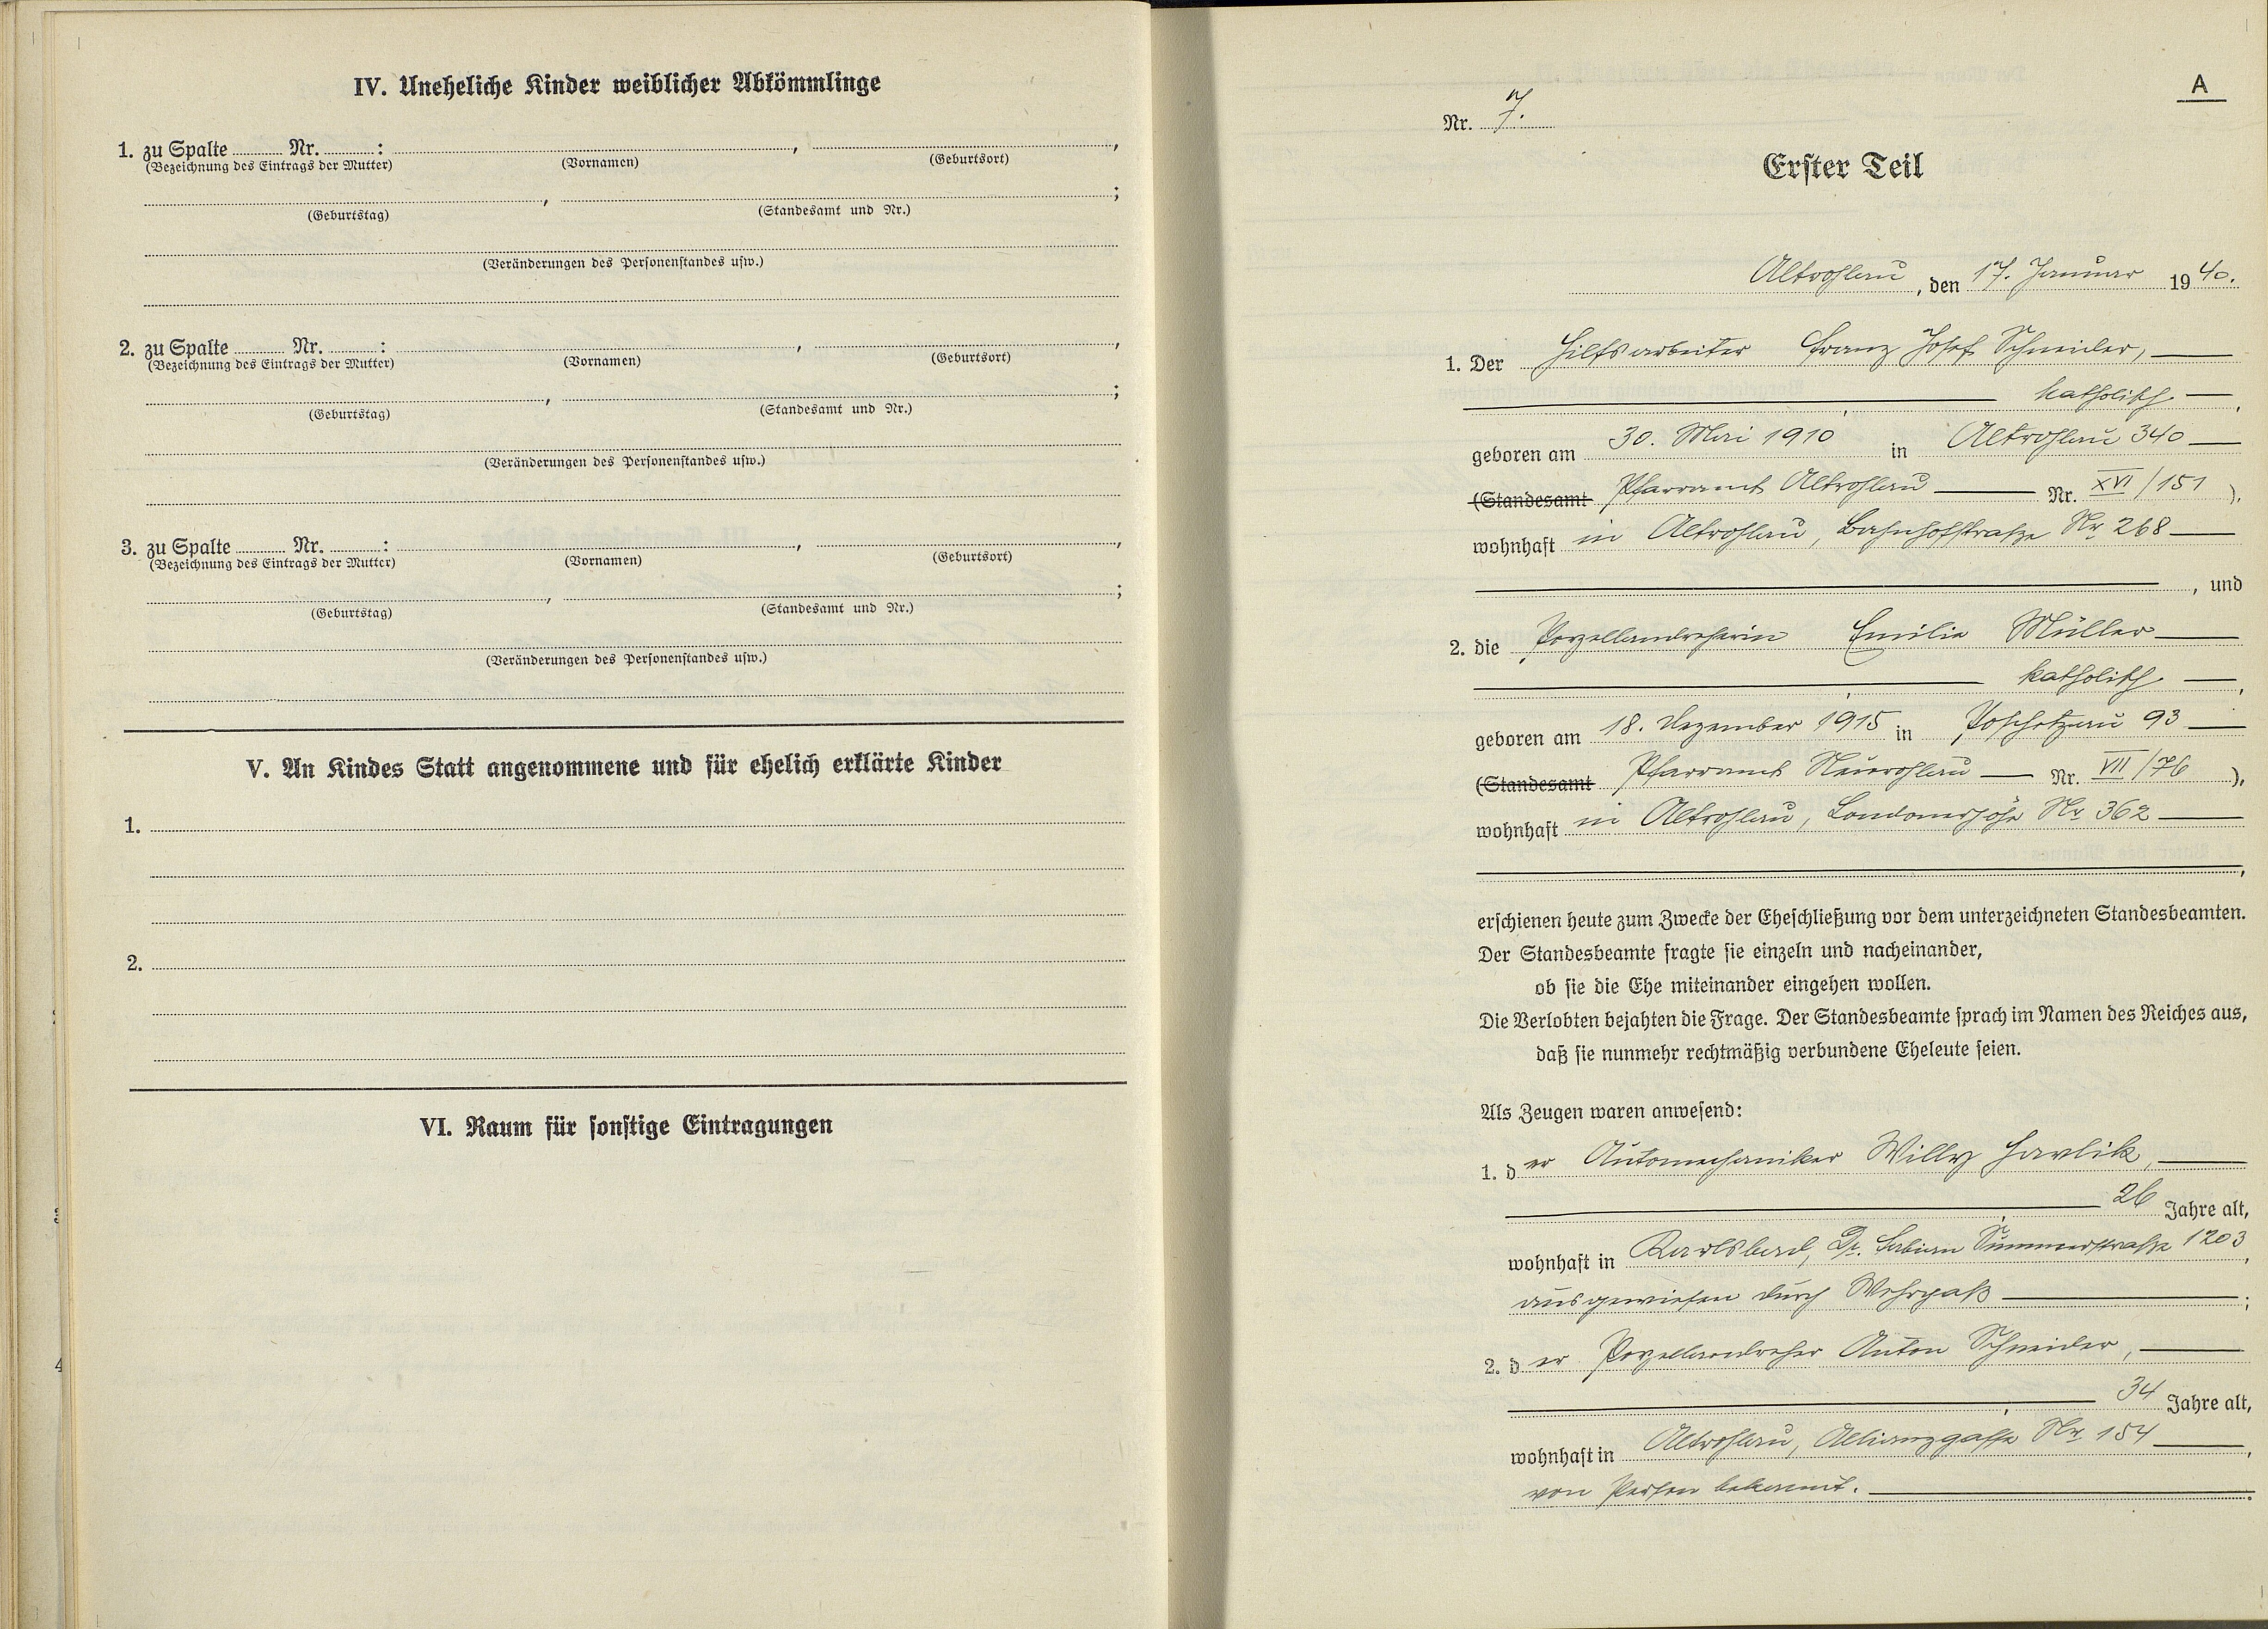 IV. Uneheliche Kinder weiblicher Abkömmlinge
1. zu Spalte ........ Nr. ........:
(Bezeichnung des Eintrags der Mutter) (Vornamen) (Geburtsort)
(Geburtstag) (Standesamt und Nr.)
(Veränderungen des Personenstandes usw.)
2. zu Spalte ........ Nr. ........:
(Bezeichnung des Eintrags der Mutter) (Vornamen) (Geburtsort)
(Geburtstag) (Standesamt und Nr.)
(Veränderungen des Personenstandes usw.)
3. zu Spalte ........ Nr. ........:
(Bezeichnung des Eintrags der Mutter) (Vornamen) (Geburtsort)
(Geburtstag) (Standesamt und Nr.)
(Veränderungen des Personenstandes usw.)
V. An Kindes Statt angenommene und für ehelich erklärte Kinder
1.
2.
VI. Raum für sonstige Eintragungen
A
Nr. 7.
Erster Teil
Altrohlau, den 17. Januar 1940.
1. Der Hilfsarbeiter Franz Josef Schneider,
katholisch
geboren am 30. Mai 1910 in Altrohlau 340
(Standesamt Pfarramt Altrohlau Nr. XVI/151),
wohnhaft in Altrohlau, Bahnhofstraße Nr 268
, und
2. die Porzellandreherin Emilie Müller
katholisch
geboren am 18. Dezember 1915 in Poschetzau 93
(Standesamt Pfarramt Neurohlau Nr. VII/76),
wohnhaft in Altrohlau, Londonerhöhe Nr 362
erschienen heute zum Zwecke der Eheschließung vor dem unterzeichneten Standesbeamten.
Der Standesbeamte fragte sie einzeln und nacheinander,
ob sie die Ehe miteinander eingehen wollen.
Die Verlobten bejahten die Frage. Der Standesbeamte sprach im Namen des Reiches aus,
daß sie nunmehr rechtmäßig verbundene Eheleute seien.
Als Zeugen waren anwesend:
1. der Automechaniker Willy Havlik,
26 Jahre alt,
wohnhaft in Karlsbad, Dr. Fabian Summerstraße 1203,
ausgewiesen durch Wehrpaß;
2. der Porzellandreher Anton Schneider,
34 Jahre alt,
wohnhaft in Altrohlau, Allianzgasse Nr. 154,
von Person bekannt.